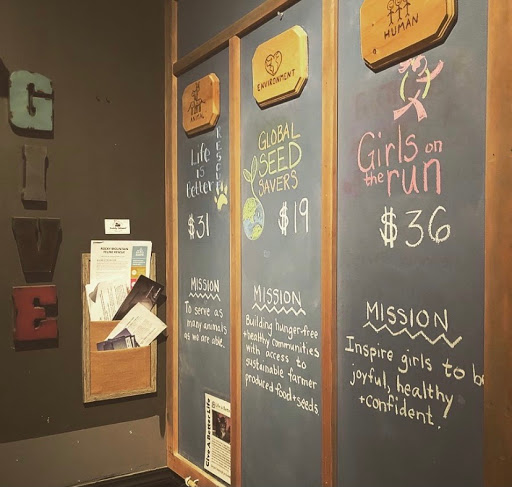 GIVE
ANIMAL
Life
is
Better
RESCUE
$31
MISSION
To serve as
many animals
as we are able.
Give A Better Life
ENVIRONMENT
GLOBAL
SEED
SAVERS
$19
MISSION
Building hunger-free
+healthy communities
with access to
sustainable farmer
produced food+seeds
HUMAN
Girls on
the run
$36
MISSION
Inspire girls to be
joyful, healthy
+confident.